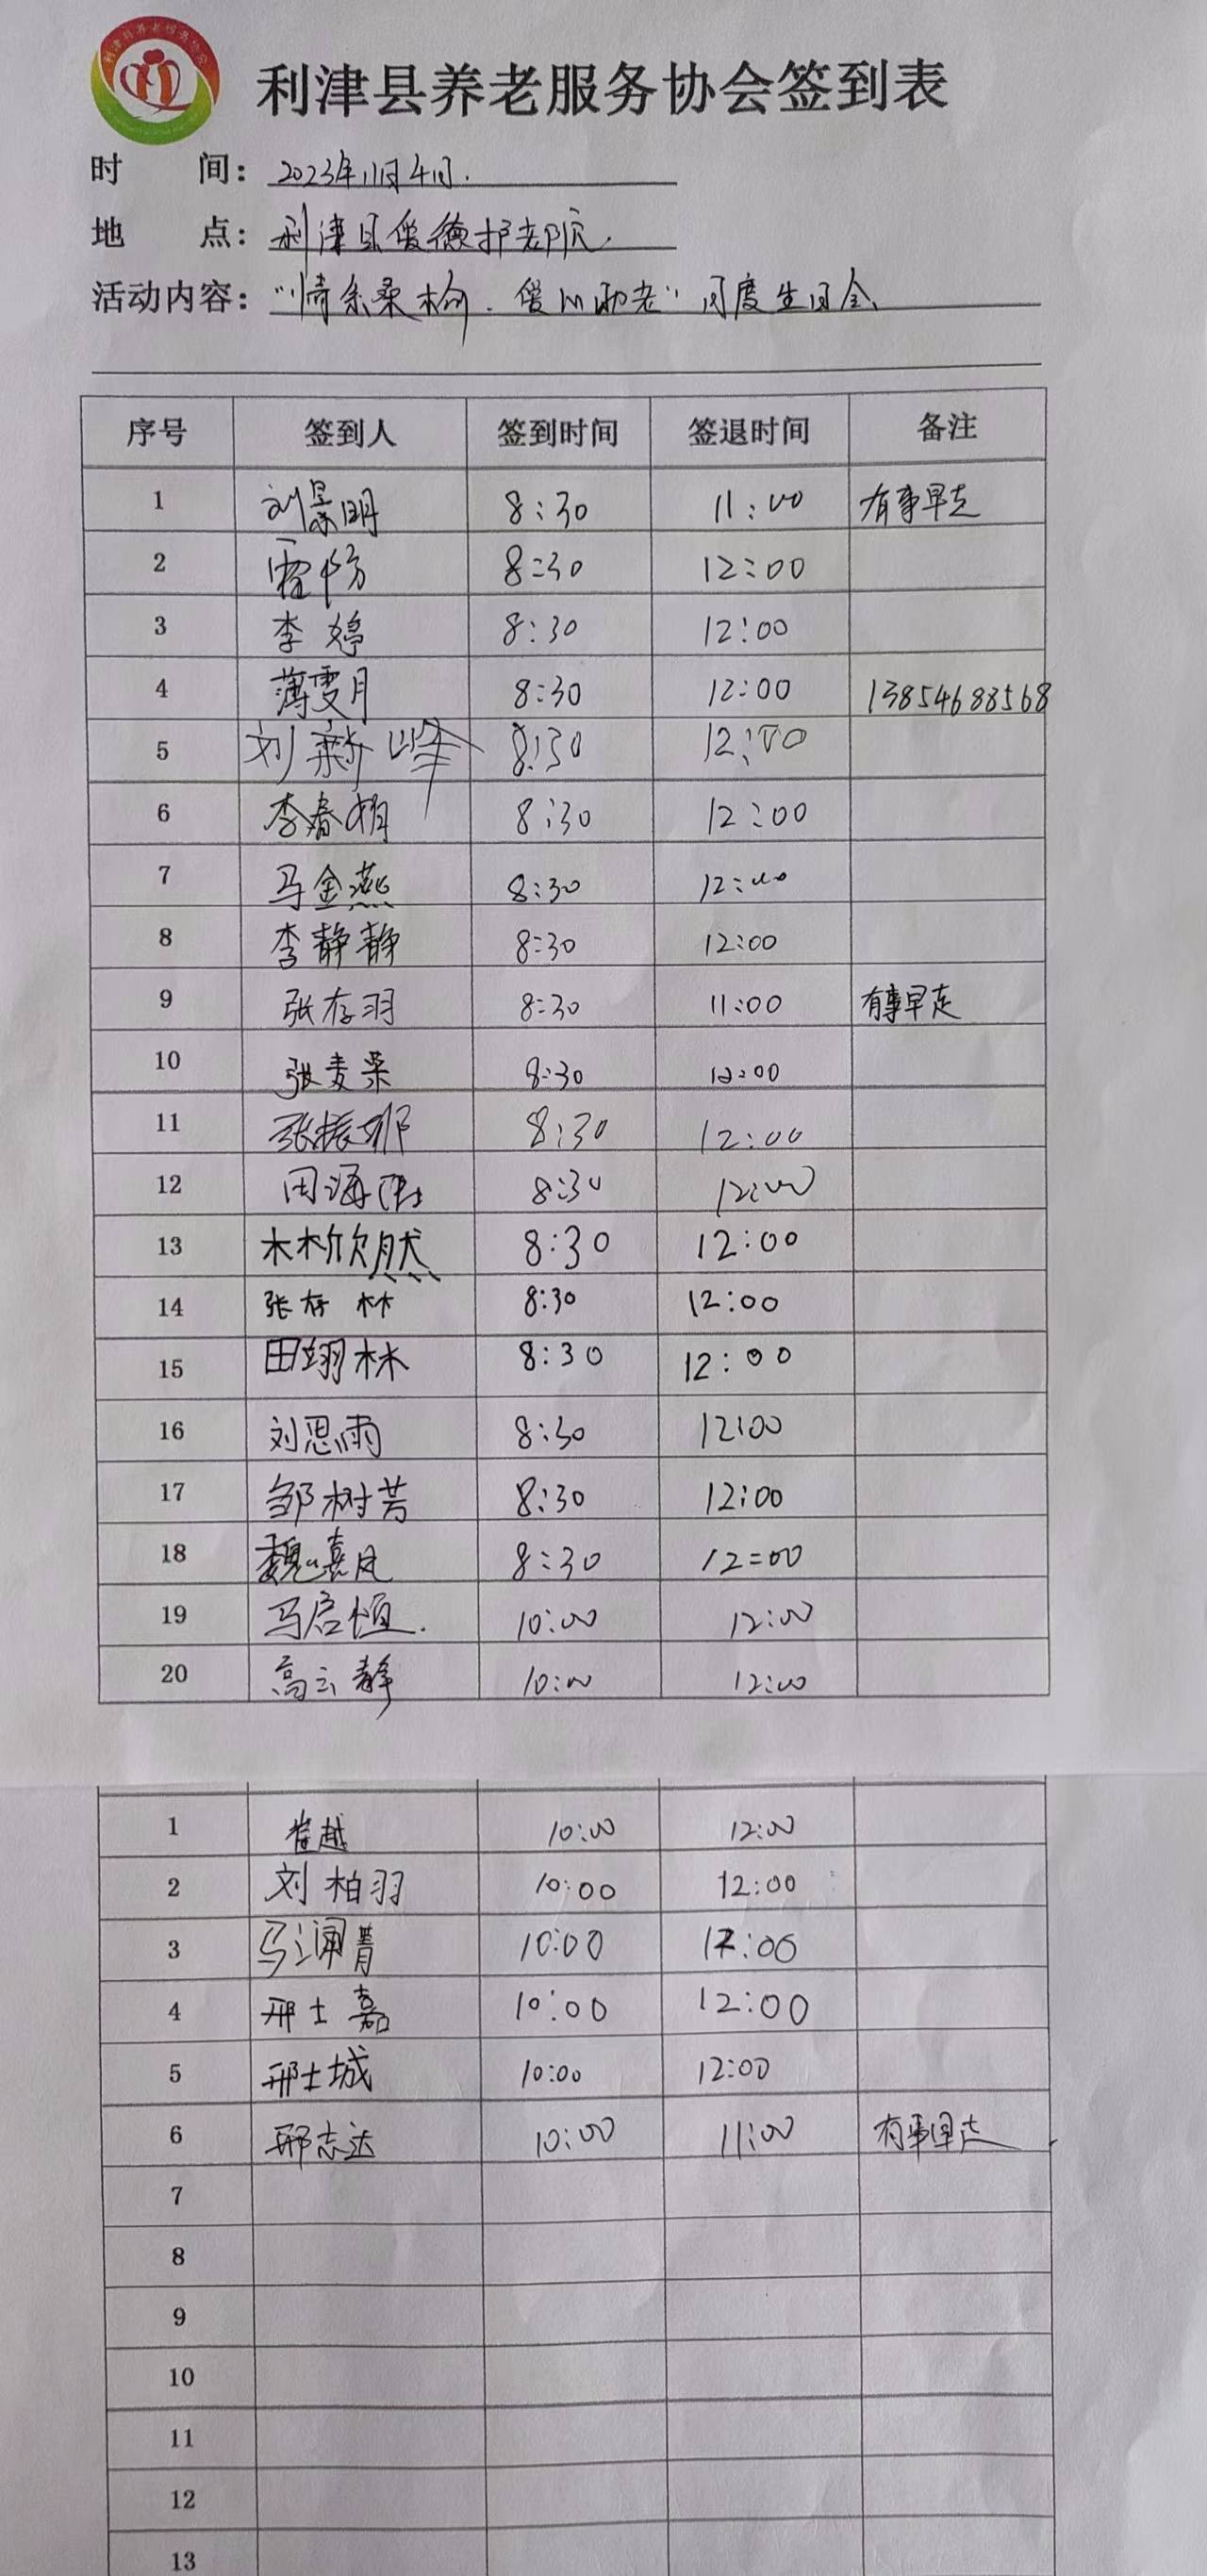 利津县养老服务协会
利津县养老服务协会签到表
时 间：2023年11月4日.
地 点：利津县爱德护老院.
活动内容："情系桑榆.爱心助老"月度生日会、
序号 签到人 签到时间 签退时间 备注
1 刘景明 8:30 11:00 有事早走
2 霍防 8:30 12:00
3 李婷 8:30 12:00
4 薄雯月 8:30 12:00 13854688568
5 刘新峰 8:30 12:00
6 李春梅 8:30 12:00
7 马金燕 8:30 12:00
8 李静静 8:30 12:00
9 张存羽 8:30 11:00 有事早走
10 张麦荣 8:30 12:00
11 张振娜 8:30 12:00
12 田海 8:30 12:00
13 林欣然 8:30 12:00
14 张存林 8:30 12:00
15 田翊林 8:30 12:00
16 刘思雨 8:30 12:00
17 邹树芳 8:30 12:00
18 魏嘉民 8:30 12:00
19 马启恒. 10:00 12:00
20 高云静 10:00 12:00
1 崔越 10:00 12:00
2 刘柏羽 10:00 12:00
3 马润菁 10:00 12:00
4 邢士嘉 10:00 12:00
5 邢士城 10:00 12:00
6 邢志达 10:00 11:00 有事早走
7
8
9
10
11
12
13